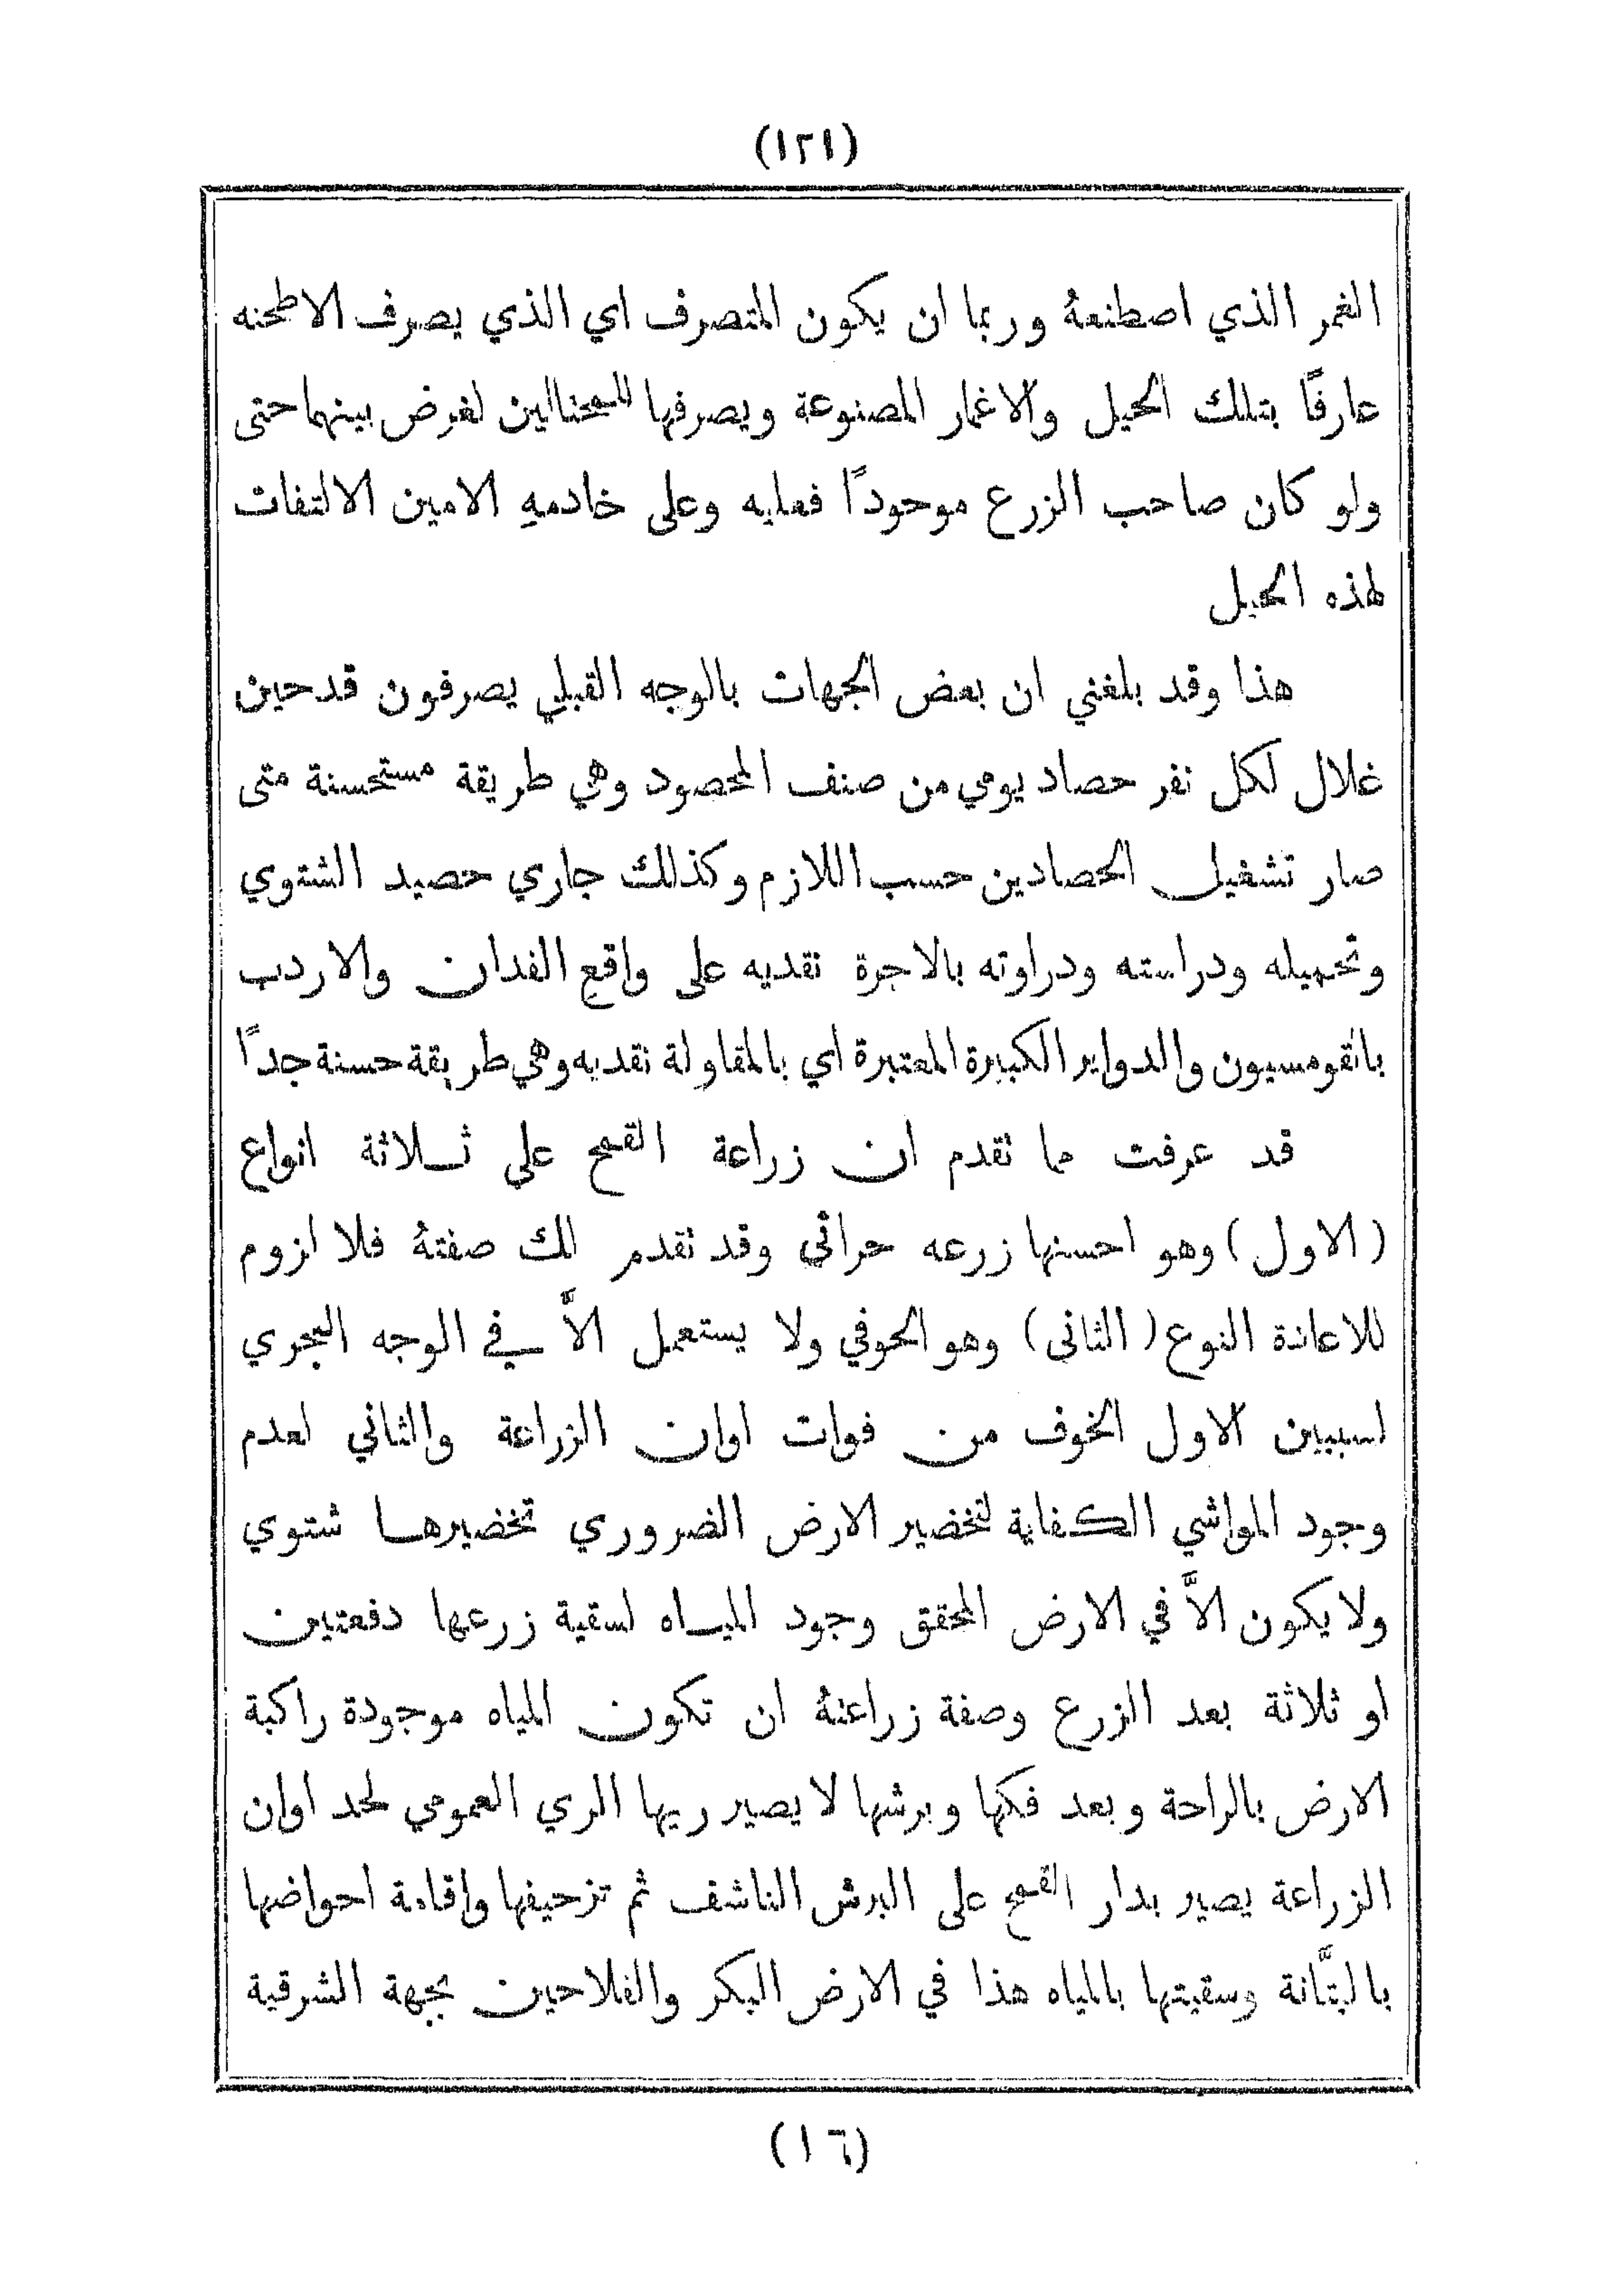 (١٢١)
الغمر الذي اصطنعهُ وربما ان يكون المتصرف اي الذي يصرف الاطحنه
عارفًا بتلك الحيل والاغمار المصنوعة ويصرفها للمحتالين لغرض بينهما حتى
ولو كان صاحب الزرع موجودًا فعليه وعلى خادمهِ الامين الالتفات
لهذه الحيل
هذا وقد بلغني ان بعض الجهات بالوجه القبلي يصرفون قدحين
غلال لكل نفر حصاد يومي من صنف المحصود وهي طريقة مستحسنة متى
صار تشغيل الحصادين حسب اللازم وكذلك جاري حصيد الشتوي
وتحميله ودراسته ودراوته بالاجرة نقديه على واقع الفدان والاردب
بالقومسيون والدواير الكبيرة المعتبرة اي بالمقاولة نقديه وهي طريقة حسنة جدًا
قد عرفت مما تقدم ان زراعة القمح على ثلاثة انواع
(الاول) وهو احسنها زرعه حراثى وقد تقدم لك صفتهُ فلا لزوم
للاعادة النوع (الثانى) وهو الحوفي ولا يستعمل الاَّ في الوجه البحري
لسببين الاول الخوف من فوات اوان الزراعة والثاني لعدم
وجود المواشي الكفاية لتخضير الارض الضروري تخضيرها شتوي
ولا يكون الاَّ في الارض المحقق وجود المياه لسقية زرعها دفعتين
او ثلاثة بعد الزرع وصفة زراعتهُ ان تكون المياه موجودة راكبة
الارض بالراحة وبعد فكها وبرشها لا يصير ريها الري العمومي لحد اوان
الزراعة يصير بدار القمح على البرش الناشف ثم تزحيفها واقامة احواضها
بالبتَّانة وسقيتها بالمياه هذا في الارض البكر والفلاحين بجهة الشرقية
(١٦)